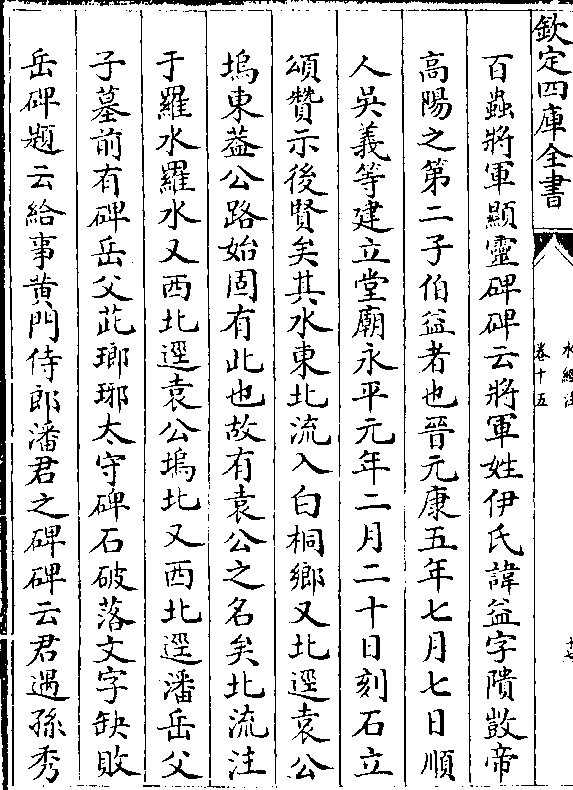 欽定四庫全書
水經注
卷十五
十七
百蟲將軍顯靈碑碑云將軍姓伊氏諱益字隤敳帝
高陽之第二子伯益者也晉元康五年七月七日順
人吳義等建立堂廟永平元年二月二十日刻石立
頌贊示後賢矣其水東北流入白桐鄉又北逕袁公
塢東葢公路始固有此也故有袁公之名矣北流注
于羅水羅水又西北逕袁公塢北又西北逕潘岳父
子墓前有碑岳父茈瑯琊太守碑石破落文字缺敗
岳碑題云給事黄門侍郎潘君之碑碑云君遇孫秀